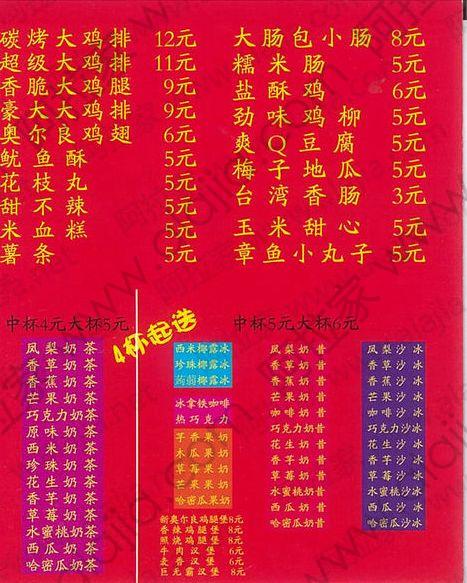 碳烤大鸡排 12元
超级大鸡排 11元
香脆大鸡腿 9元
豪大大鸡排 9元
奥尔良鸡翅 6元
鱿鱼酥 5元
花枝丸 5元
甜不辣 5元
米血糕 5元
薯条 5元
大肠包小肠 8元
糯米肠 5元
盐酥鸡 6元
劲味鸡柳 5元
爽Q豆腐 5元
梅子地瓜 5元
台湾香肠 3元
玉米甜心 5元
章鱼小丸子 5元
中杯4元大杯5元
凤梨奶茶
香草奶茶
香蕉奶茶
芒果奶茶
巧克力奶茶
原味奶茶
西米奶茶
珍珠奶茶
花生奶茶
香芋奶茶
草莓奶茶
水蜜桃奶茶
西瓜奶茶
哈密瓜奶茶
4杯起送
西米椰露冰
珍珠椰露冰
蒟蒻椰露冰
冰拿铁咖啡
热巧克力
芋香果奶
木瓜果奶
草莓果奶
芒果果奶
哈密瓜果奶
新奥尔良鸡腿堡8元
香辣鸡腿堡8元
照烧鸡腿堡8元
牛肉汉堡6元
麦香汉堡6元
巨无霸汉堡8元
中杯5元大杯6元
凤梨奶昔
香草奶昔
香蕉奶昔
芒果奶昔
咖啡奶昔
巧克力奶昔
花生奶昔
香芋奶昔
草莓奶昔
水蜜桃奶昔
西瓜奶昔
哈密瓜奶昔
凤梨沙冰
香草沙冰
香蕉沙冰
芒果沙冰
咖啡沙冰
巧克力沙冰
花生沙冰
香芋沙冰
草莓沙冰
水蜜桃沙冰
西瓜沙冰
哈密瓜沙冰